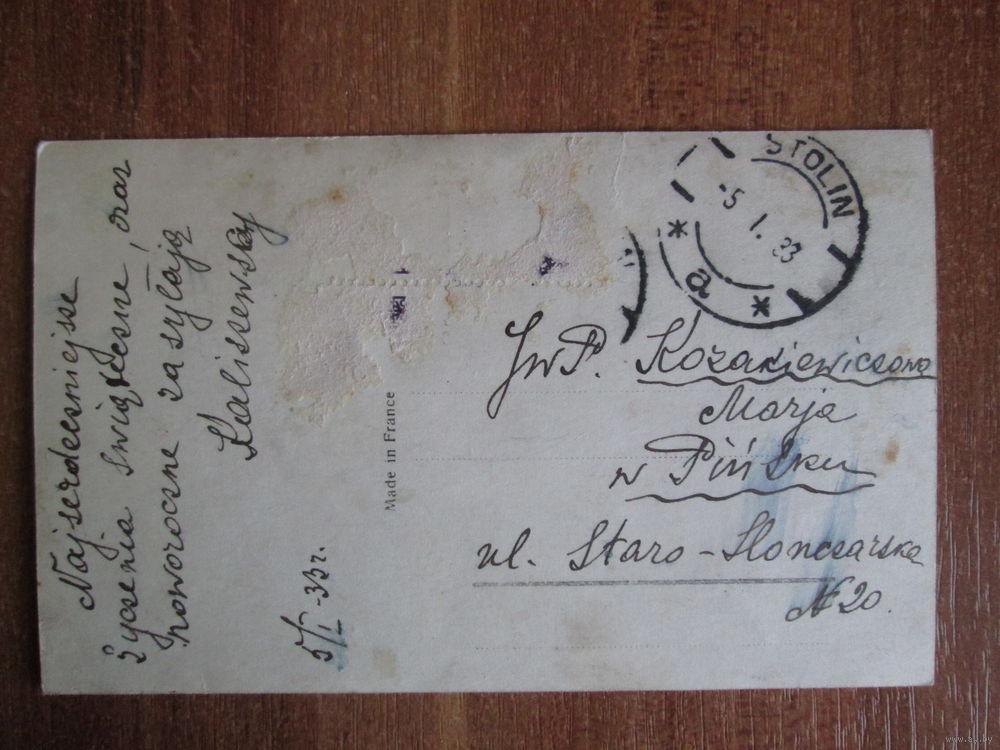 Najserdeczniejsze
życzenia świąteczne, oraz
noworoczne zasyłają
Kaliszewscy
5/I-33 r.
Made in France
STOLIN
-5 I. 33
* a *
JWP. Kozakiewiczowa
Marja
w Pińsku
ul. Staro-Honczarska
N 20.